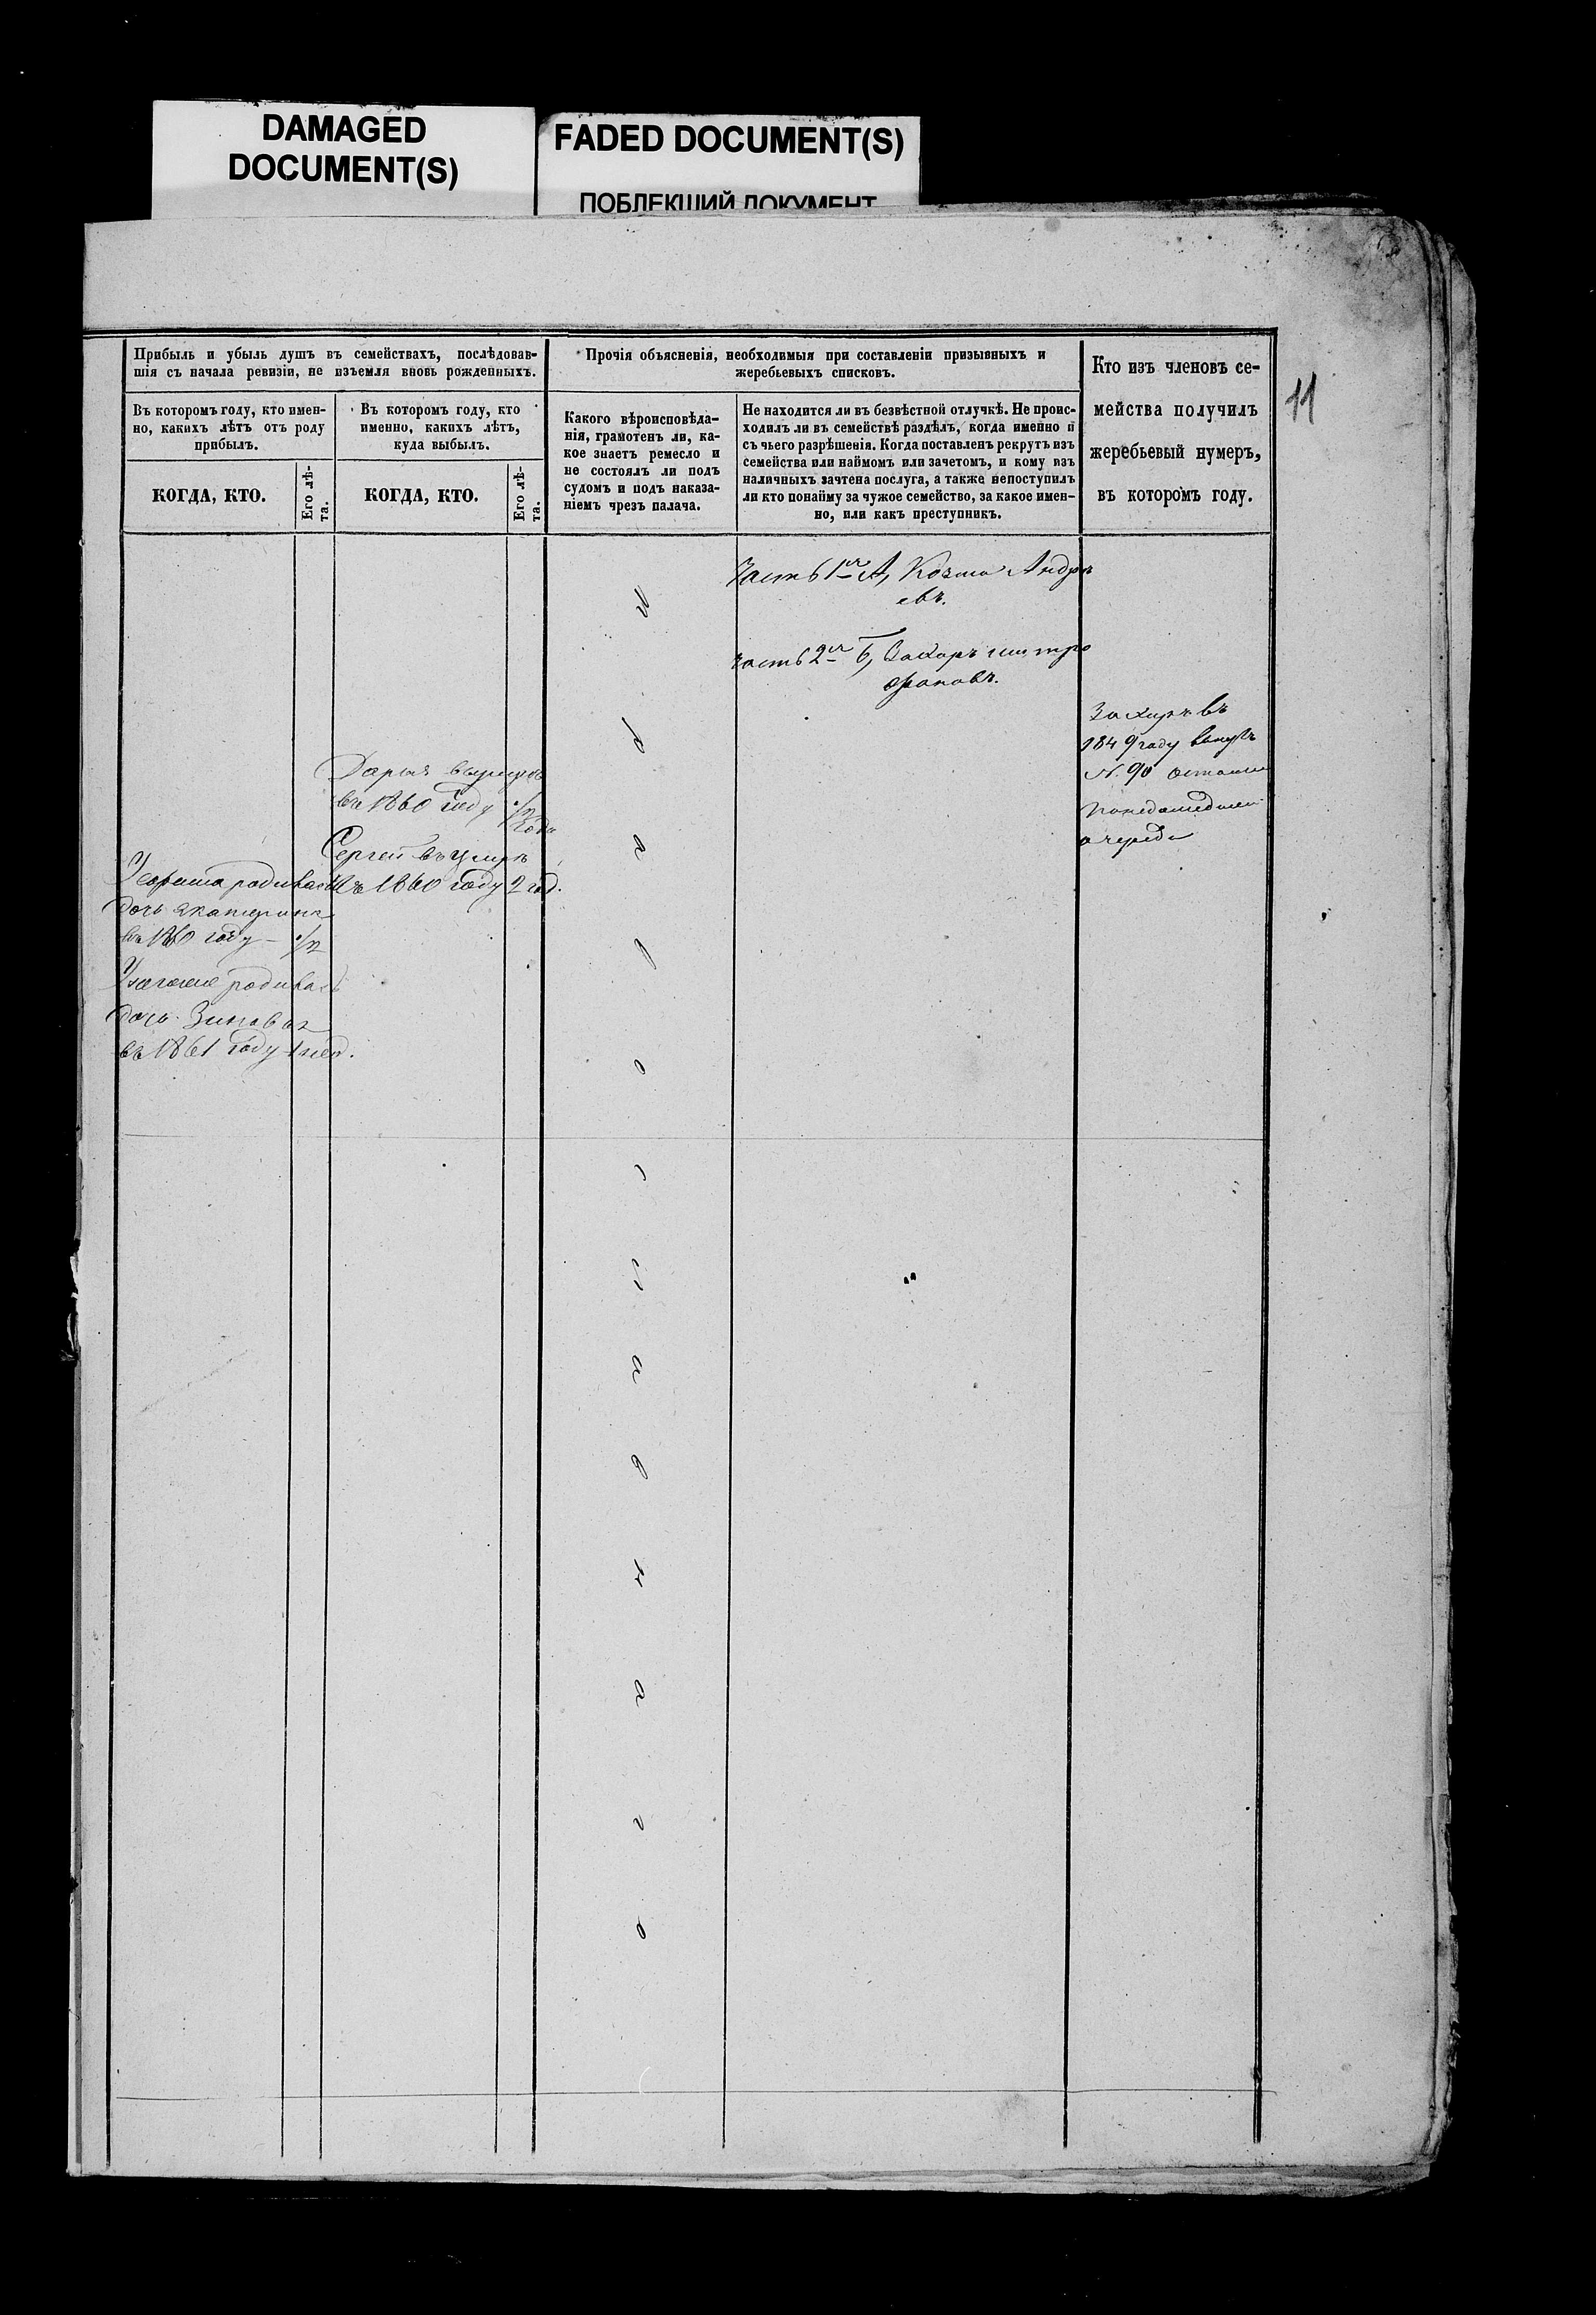 DAMAGED
DOCUMENT(S)
FADED DOCUMENT(S)
ПОБЛЕКШИЙ ДОКУМЕНТ
11
Прибыль и убыль душъ въ семействахъ, послѣдовав-
шія съ начала ревизіи, не изъемля вновь рожденныхъ.
Въ которомъ году, кто имен-
но, какихъ лѣтъ отъ роду
прибылъ.
Въ которомъ году, кто
именно, какихъ лѣтъ,
куда выбылъ.
КОГДА, КТО.
Его лѣ-
та.
КОГДА, КТО.
Его лѣ-
та.
Прочія объясненія, необходимыя при составленіи призывныхъ и
жеребьевыхъ списковъ.
Какого вѣроисповѣда-
нія, грамотенъ ли, ка-
кое знаетъ ремесло и
не состоялъ ли подъ
судомъ и подъ наказа-
ніемъ чрезъ палача.
Не находится ли въ безвѣстной отлучкѣ. Не проис-
ходилъ ли въ семействѣ раздѣлъ, когда именно и
съ чьего разрѣшенія. Когда поставленъ рекрутъ изъ
семейства или наймомъ или зачетомъ, и кому изъ
наличныхъ зачтена послуга, а также непоступилъ
ли кто понайму за чужое семейство, за какое имен-
но, или какъ преступникъ.
Кто изъ членовъ се-
мейства получилъ
жеребьевый нумеръ,
въ которомъ году.
родилась
дочь Екатерина
въ 1860 году
родилась
дочь Зиновья
въ 1861 году 1 нед.
Дарья
въ 1860 году
года
Сергей въ
въ 1860 году 2 год.
п
р
а
в
о
с
л
а
в
н
а
г
о
Часть 1я А, Козма Андре
евъ.
часть 2я Б, Захаръ митро
фановъ.
Захаръ въ
1849 году вынулъ
N. 90
очереди